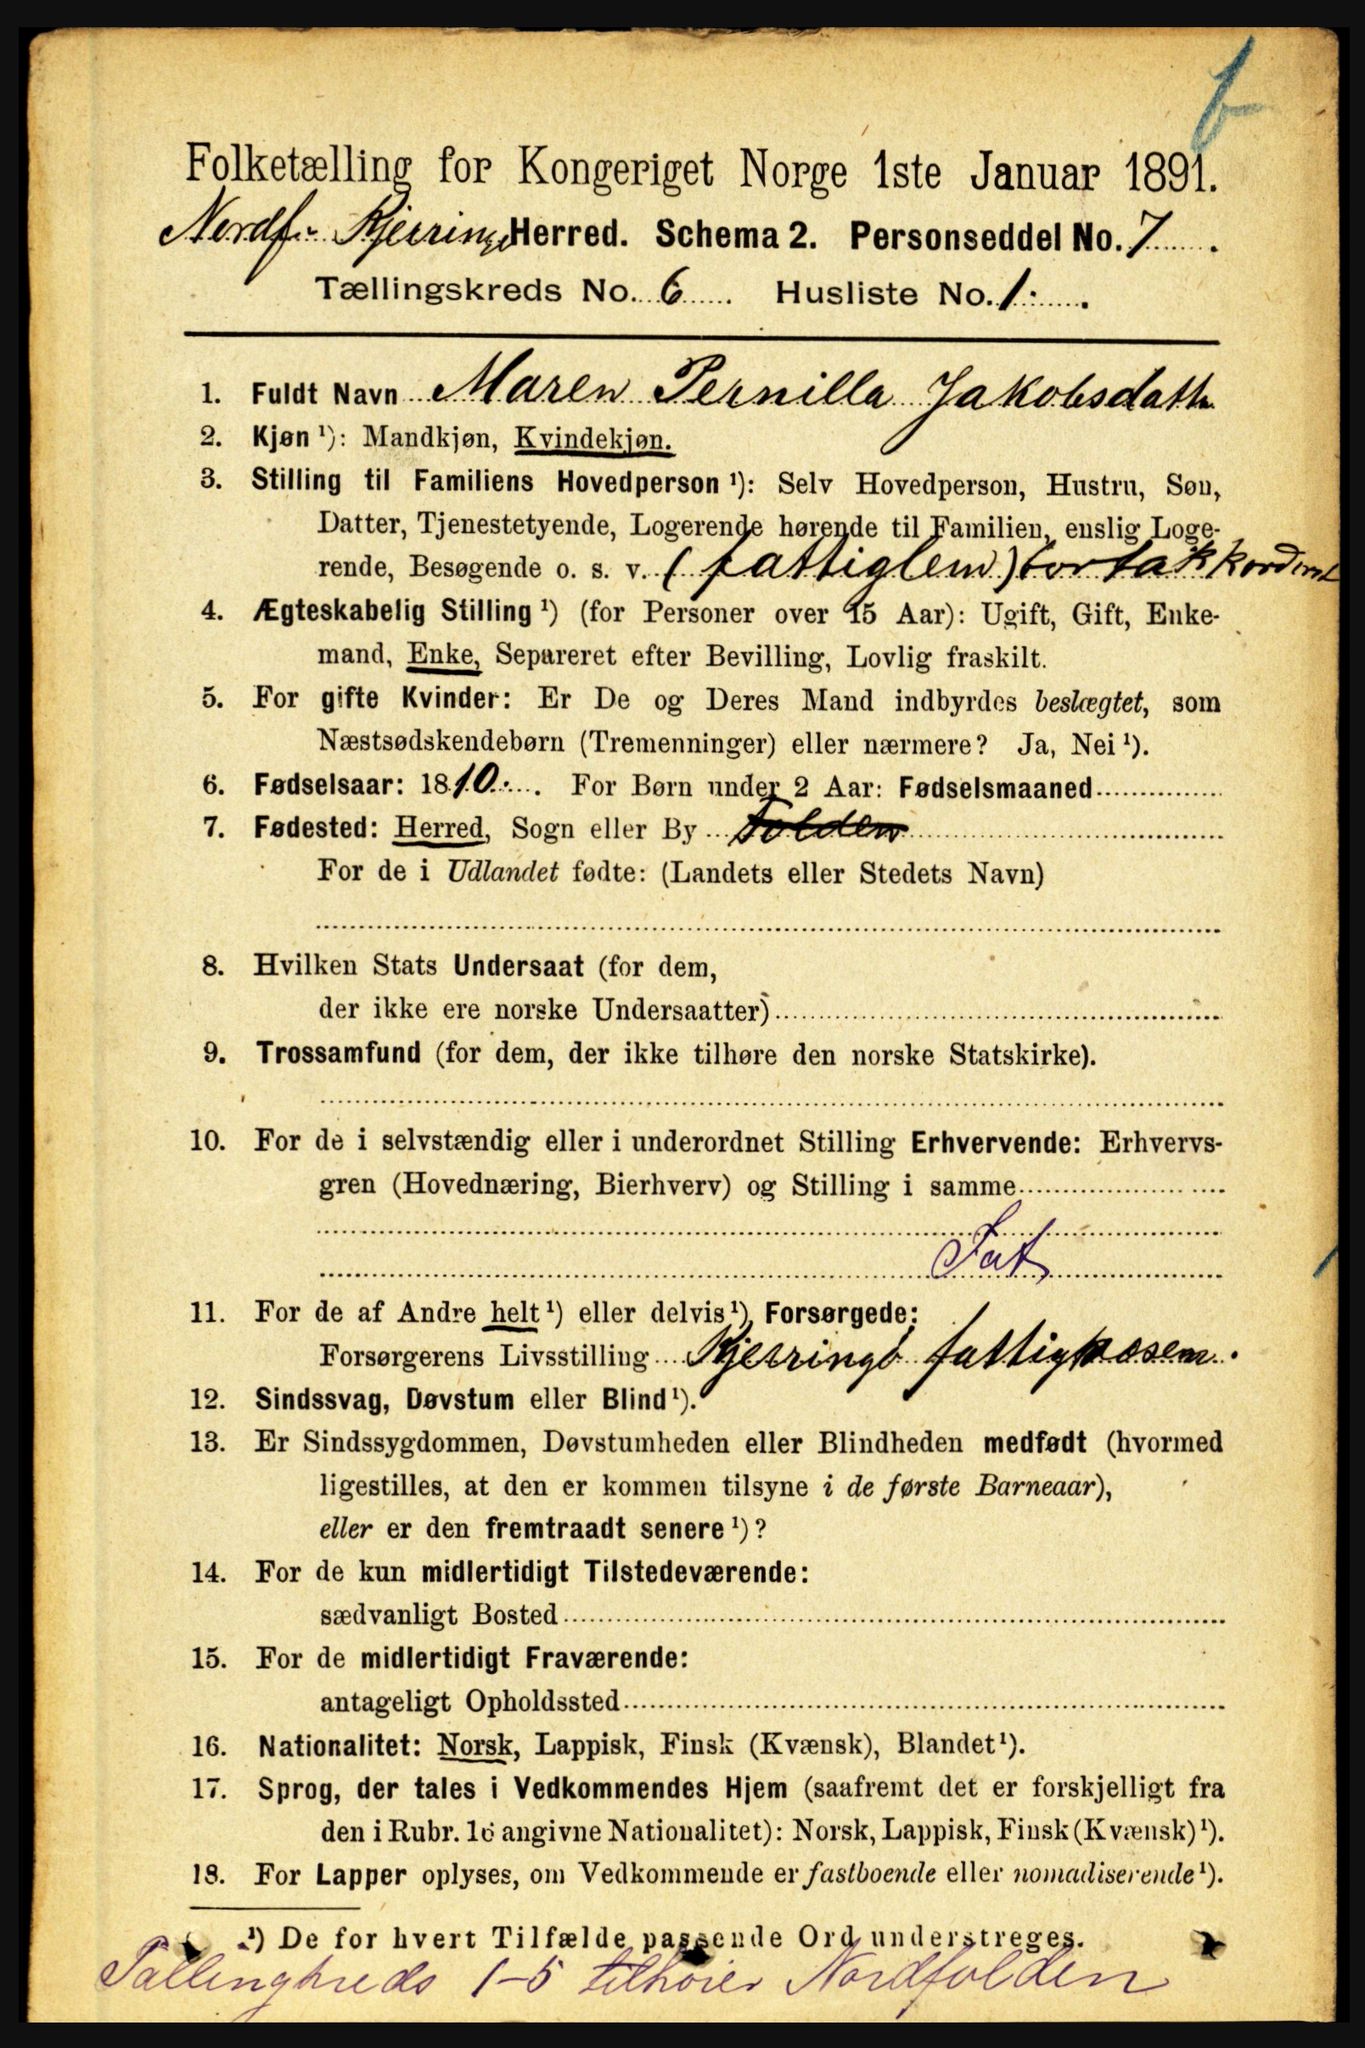 b
Folketælling for Kongeriget Norge 1ste Januar 1891.
Nordf.- Kjerringø Herred. Schema 2. Personseddel No. 7.
Tællingskreds No. 6. Husliste No. 1.
1. Fuldt Navn Maren Pernilla Jakobsdattr
2. Kjøn ¹): Mandkjøn, Kvindekjøn.
3. Stilling til Familiens Hovedperson ¹): Selv Hovedperson, Hustru, Søn,
Datter, Tjenestetyende, Logerende hørende til Familien, enslig Loge-
rende, Besøgende o. s. v. (fattiglem) bortakkorderet
4. Ægteskabelig Stilling ¹) (for Personer over 15 Aar): Ugift, Gift, Enke-
mand, Enke, Separeret efter Bevilling, Lovlig fraskilt.
5. For gifte Kvinder: Er De og Deres Mand indbyrdes beslægtet, som
Næstsødskendebørn (Tremenninger) eller nærmere? Ja, Nei ¹).
6. Fødselsaar: 1810. For Børn under 2 Aar: Fødselsmaaned
7. Fødested: Herred, Sogn eller By Folden
For de i Udlandet fødte: (Landets eller Stedets Navn)
8. Hvilken Stats Undersaat (for dem,
der ikke ere norske Undersaatter)
9. Trossamfund (for dem, der ikke tilhøre den norske Statskirke).
10. For de i selvstændig eller i underordnet Stilling Erhvervende: Erhvervs-
gren (Hovednæring, Bierhverv) og Stilling i samme
Fat
11. For de af Andre helt ¹) eller delvis ¹) Forsørgede:
Forsørgerens Livsstilling Kjerringø fattigvæsen.
12. Sindssvag, Døvstum eller Blind ¹).
13. Er Sindssygdommen, Døvstumheden eller Blindheden medfødt (hvormed
ligestilles, at den er kommen tilsyne i de første Barneaar),
eller er den fremtraadt senere ¹)?
14. For de kun midlertidigt Tilstedeværende:
sædvanligt Bosted
15. For de midlertidigt Fraværende:
antageligt Opholdssted
16. Nationalitet: Norsk, Lappisk, Finsk (Kvænsk), Blandet ¹).
17. Sprog, der tales i Vedkommendes Hjem (saafremt det er forskjelligt fra
den i Rubr. 16 angivne Nationalitet): Norsk, Lappisk, Finsk (Kvænsk) ¹).
18. For Lapper oplyses, om Vedkommende er fastboende eller nomadiserende ¹).
¹) De for hvert Tilfælde passende Ord understreges.
Tællingkreds 1-5 tilhører Nordfolden